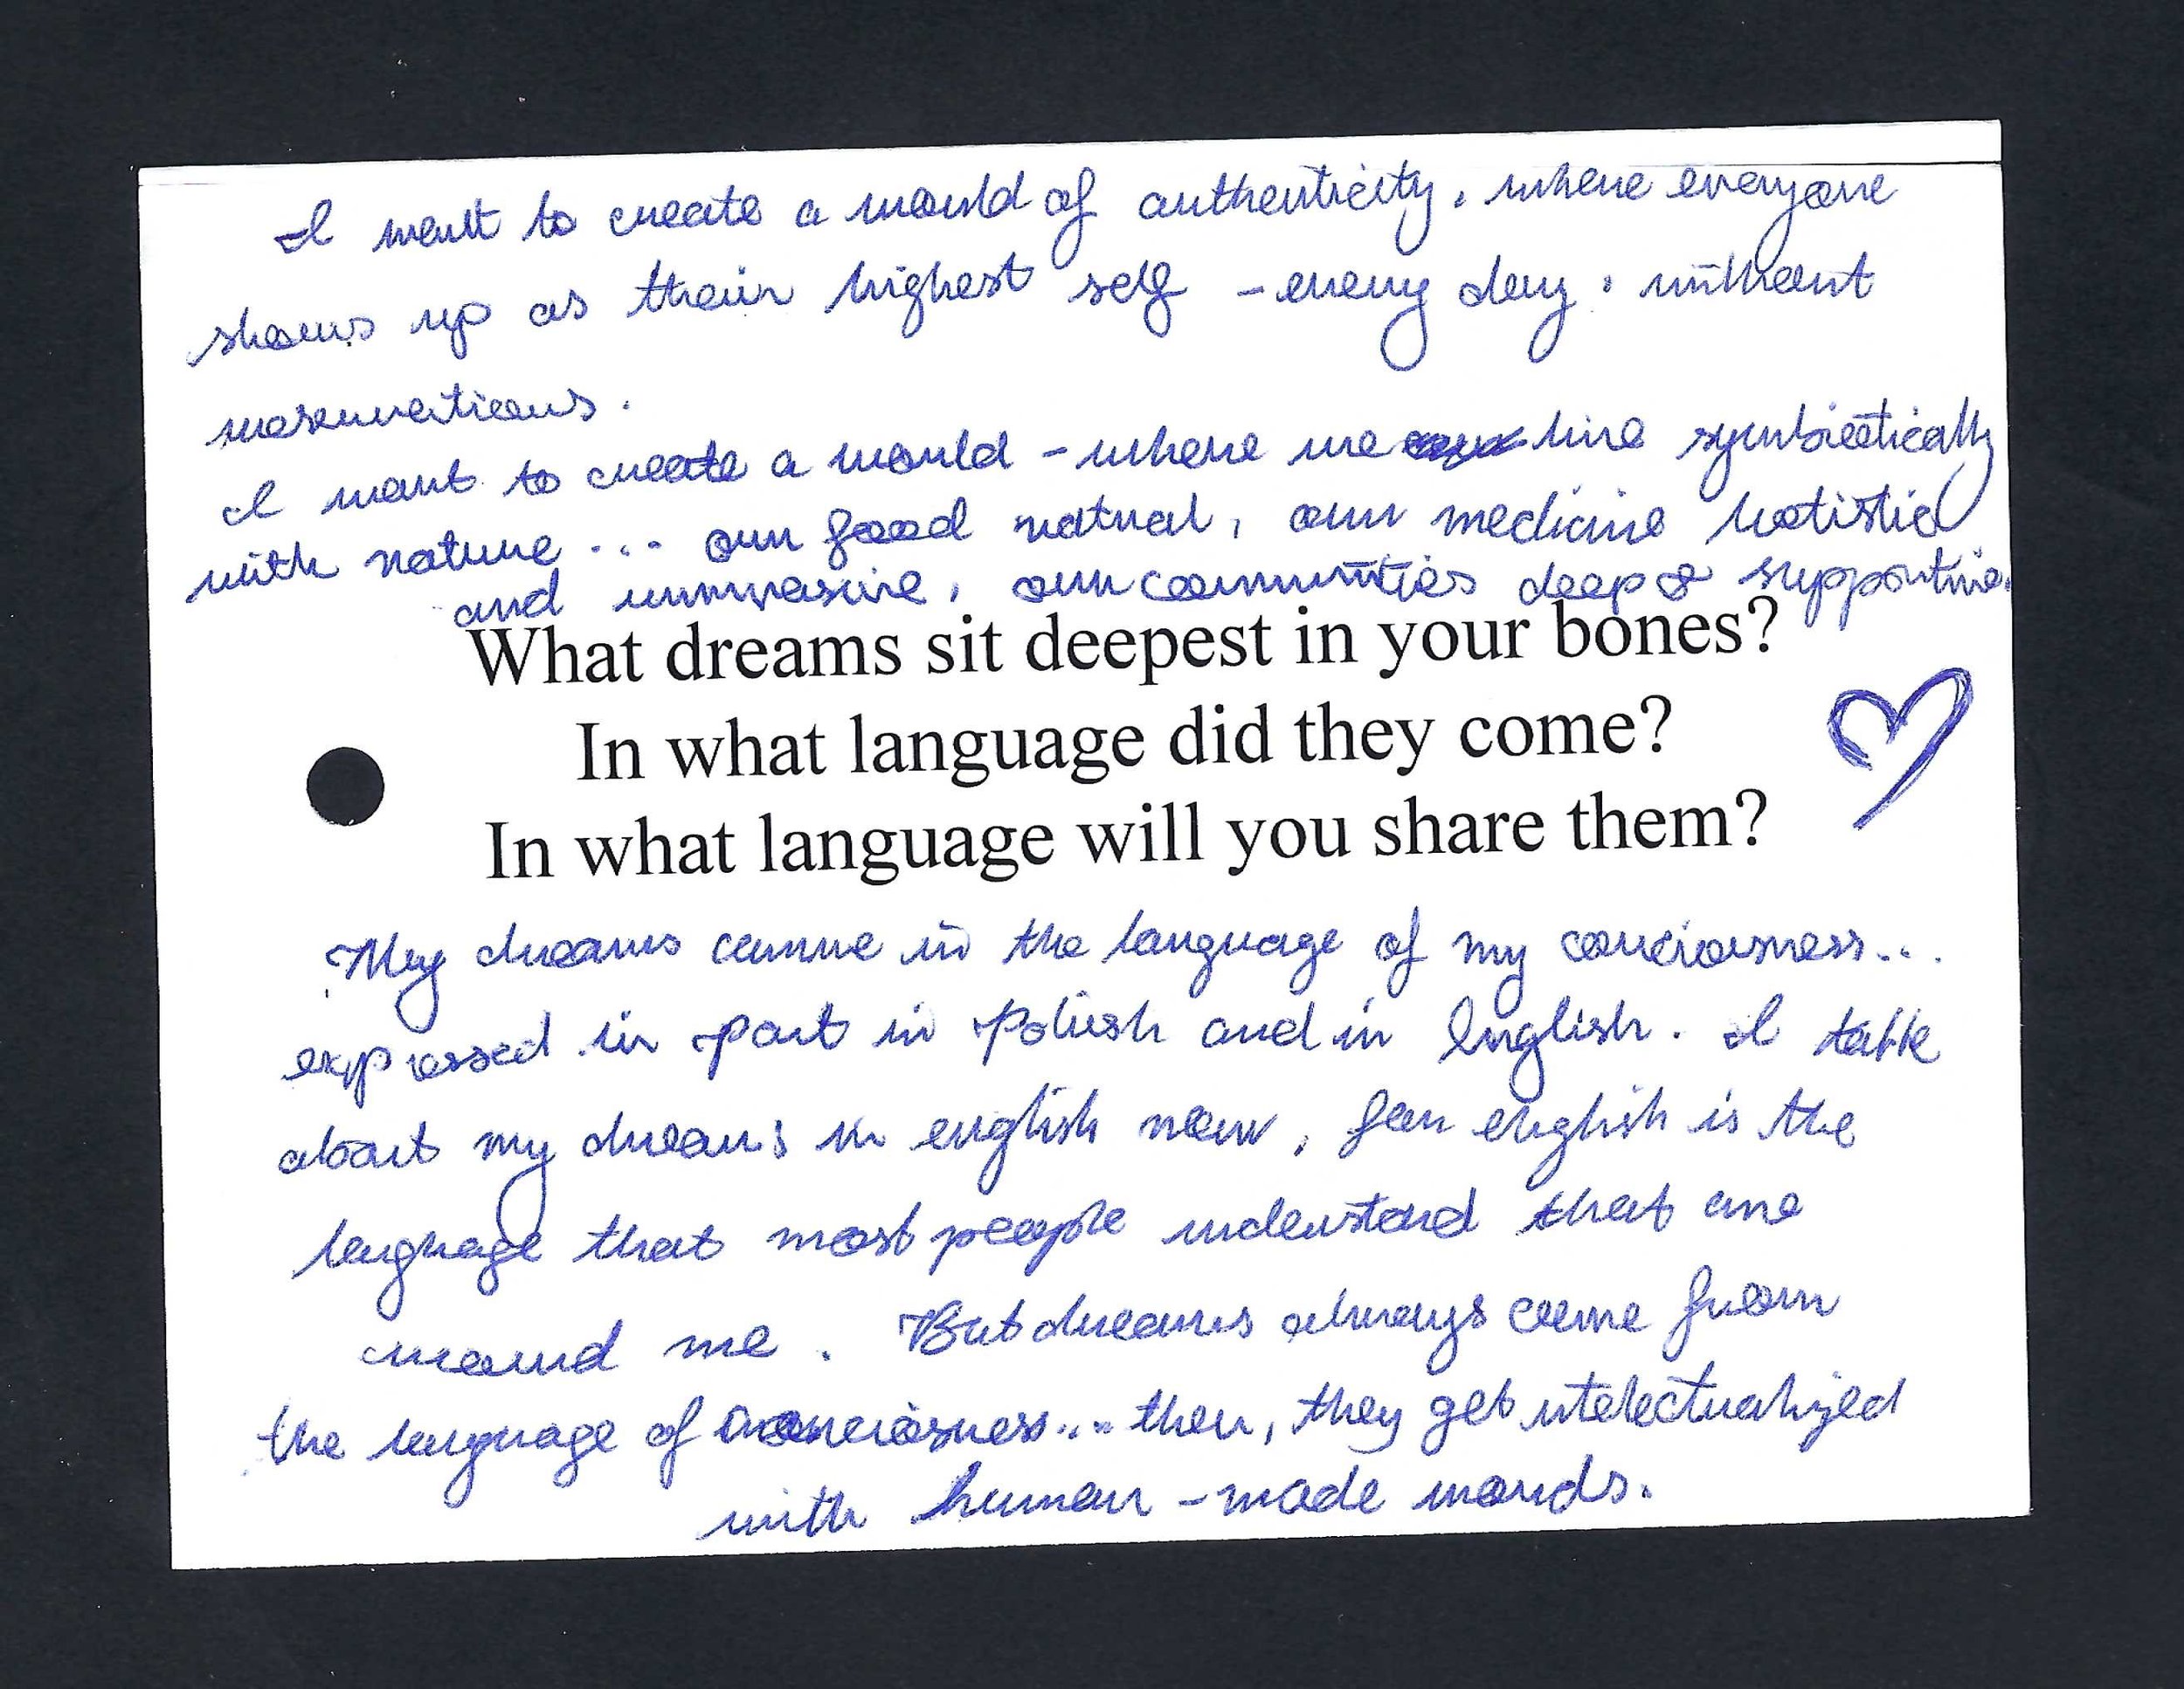 I want to create a world of authenticity, where everyone
shows up as their highest self - every day, without
reservations.
I want to create a world - where we live symbiotically
with nature ... our food natural, our medicine holistic
and , our communities deep & supportive.
What dreams sit deepest in your bones?
In what language did they come?
In what language will you share them?
My dreams came in the language of my conciousness...
expressed in part in Polish and in English. I talk
about my dreams in english now, for english is the
language that most people understand that are
around me. But dreams always come from
the language of conciosness... then, they get intelectualized
with human-made words.